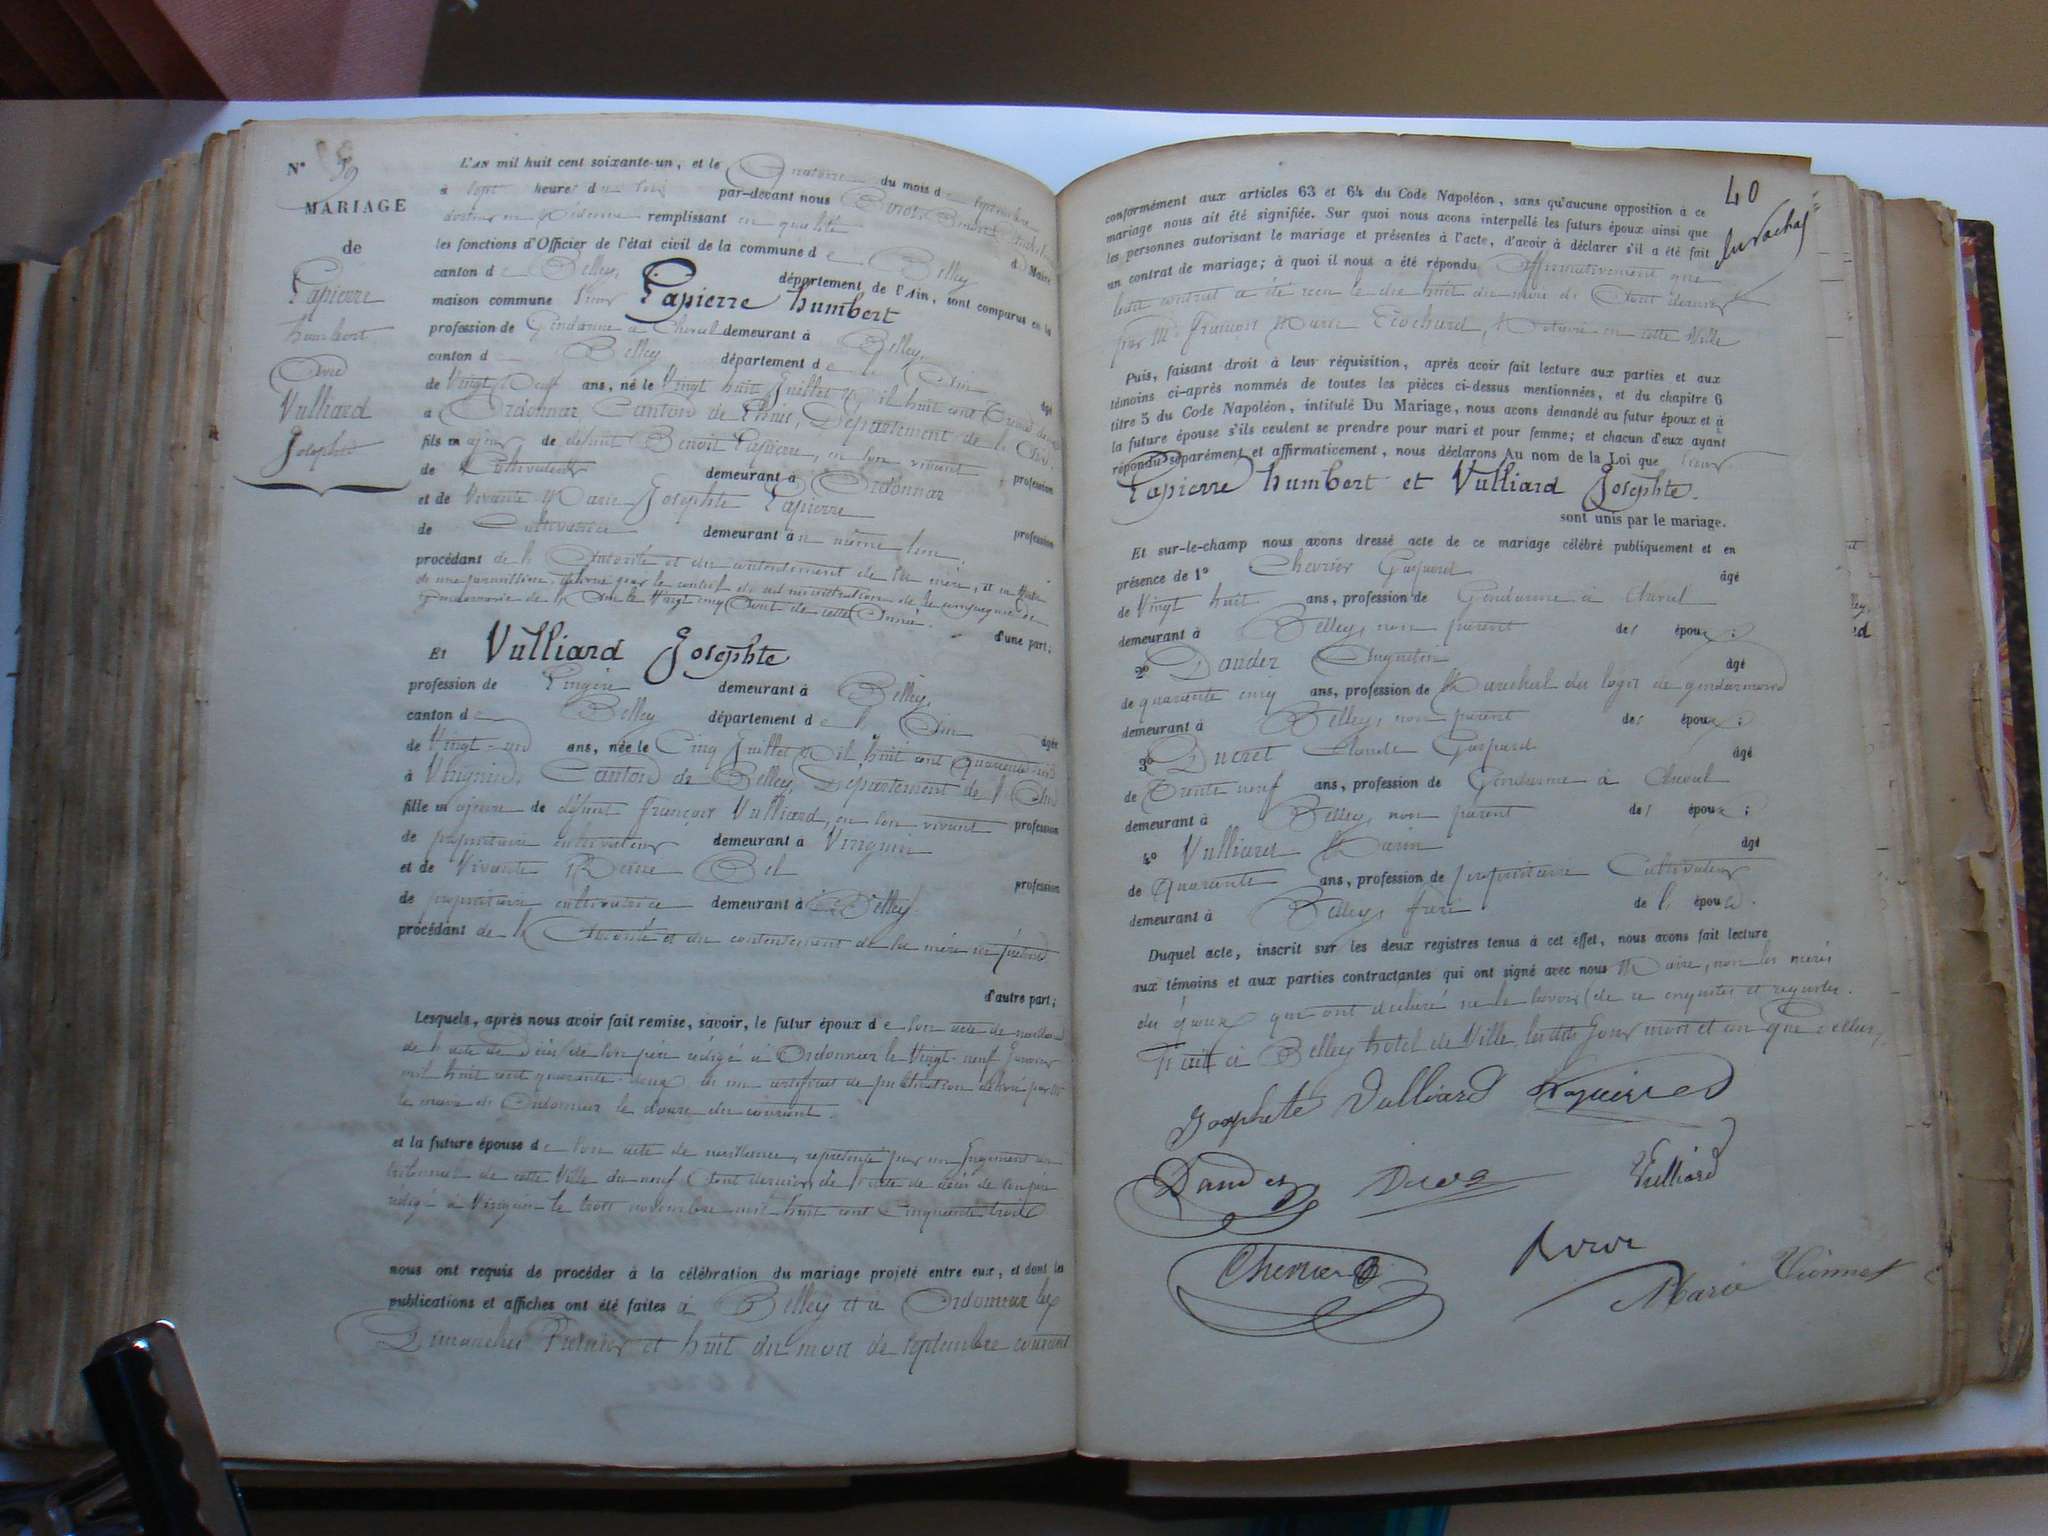 N° 39
MARIAGE
de
Lapierre
humbert
Avec
Vulliard
Josephte
L'AN mil huit cent soixante-un, et le Quatorze du mois de septembre
à sept heures du soir par-devant nous
docteur en Médecine remplissant en qualité de Maire
les fonctions d'Officier de l'état civil de la commune de Belley
canton de Belley, département de l'Ain, sont comparus en la
maison commune Lapierre humbert
profession de Gendarme à Cheval demeurant à Belley,
canton d Belley département de l'Ain âgé
de Vingt Neuf ans, né le Vingt huit Juillet Mil huit cent Trente deux
à Ordonnaz Canton de Lhuis, Département de l'Ain,
fils majeur de défunt Benoit Lapierre, en son vivant profession
de Cultivateur demeurant à Ordonnaz
et de Vivante Marie Josephte Lapierre profession
de Cultivatrice demeurant au même lieu,
procédant de l'Autorité et du consentement de sa mère, et en vertu
de une permission, délivrée par le conseil d'administration de la compagnie de
gendarmerie de l'Ain le Vingt cinq Août de cette Année. d'une part;
Et Vulliard Josephte
profession de Lingère demeurant à Belley,
canton de Belley département de l'Ain âgée
de Vingt-un ans, née le Cinq Juillet Mil huit cent quarante
à Virignin, Canton de Belley, Département de l'Ain
fille majeure de défunt françois Vulliard, en son vivant profession
de propriétaire cultivateur demeurant à Virignin
et de Vivante Reine Bel profession
de propriétaire cultivatrice demeurant à Belley
procédant de l'Autorité et du consentement de sa mère ici présente
d'autre part;
Lesquels, après nous avoir fait remise, savoir, le futur époux de son acte de naissance
de l'acte de Décès de son père rédigé à Ordonnaz le Vingt-neuf Janvier
mil huit cent quarante-deux, et un certificat de publication délivré par Mr
le maire de Ordonnaz le douze du courant.
et la future épouse de son acte de naissance, représenté par un Jugement du
tribunal de cette Ville du neuf Août dernier, de l'acte de décès de son père
rédigé à Virignin le trois novembre mil huit cent Cinquante trois
nous ont requis de procéder à la célébration du mariage projeté entre eux, et dont les
publications et affiches ont été faites à Belley et à Ordonnaz les
Dimanches Premier et huit du mois de septembre courant
40
conformément aux articles 63 et 64 du Code Napoléon, sans qu'aucune opposition à ce
mariage nous ait été signifiée. Sur quoi nous avons interpellé les futurs époux ainsi que
les personnes autorisant le mariage et présentes à l'acte, d'avoir à déclarer s'il a été fait
un contrat de mariage; à quoi il nous a été répondu Affirmativement que
ledit contrat a été reçu le dix huit du mois de Août dernier
par Me François Marie Trochard, Notaire en cette Ville
Puis, faisant droit à leur réquisition, après avoir fait lecture aux parties et aux
témoins ci-après nommés de toutes les pièces ci-dessus mentionnées, et du chapitre 6
titre 5 du Code Napoléon, intitulé Du Mariage, nous avons demandé au futur époux et à
la future épouse s'ils veulent se prendre pour mari et pour femme; et chacun d'eux ayant
répondu séparément et affirmativement, nous déclarons Au nom de la Loi que
Lapierre humbert et Vulliard Josephte.
sont unis par le mariage.
Et sur-le-champ nous avons dressé acte de ce mariage célébré publiquement et en
présence de 1° Chevrier Gaspard âgé
de Vingt huit ans, profession de Gendarme à Cheval
demeurant à Belley, non parent des époux;
2° Dandez Augustin âgé
de quarante cinq ans, profession de Maréchal des logis de gendarmerie
demeurant à Belley, non parent des époux;
3° Ducret Claude Gaspard âgé
de Trente neuf ans, profession de Gendarme à Cheval
demeurant à Belley, non parent des époux;
4° Vulliard Marin âgé
de Quarante ans, profession de propriétaire Cultivateur
demeurant à Belley, frère de l'épouse.
Duquel acte, inscrit sur les deux registres tenus à cet effet, nous avons fait lecture
aux témoins et aux parties contractantes qui ont signé avec nous Maire, non les mères
des époux qui ont déclaré ne le savoir (de ce enquises et requises.
Fait à Belley hotel de Ville, lesdits Jour mois et an que dessus,
Josephte Vulliard Lapierre
Dandez Vulliard
Chevrier
Marie Vionnet